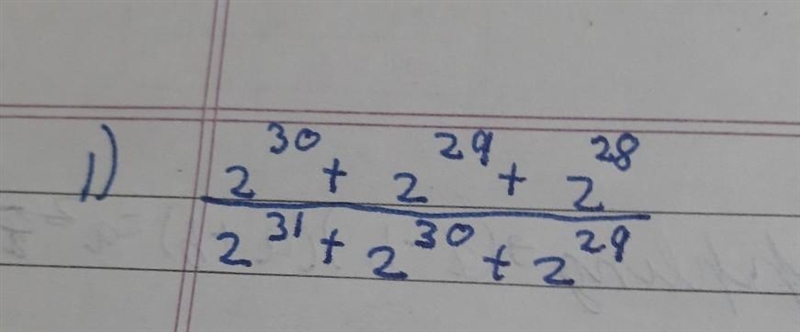 1) 2^30 + 2^29 + 2^28
2^31 + 2^30 + 2^29